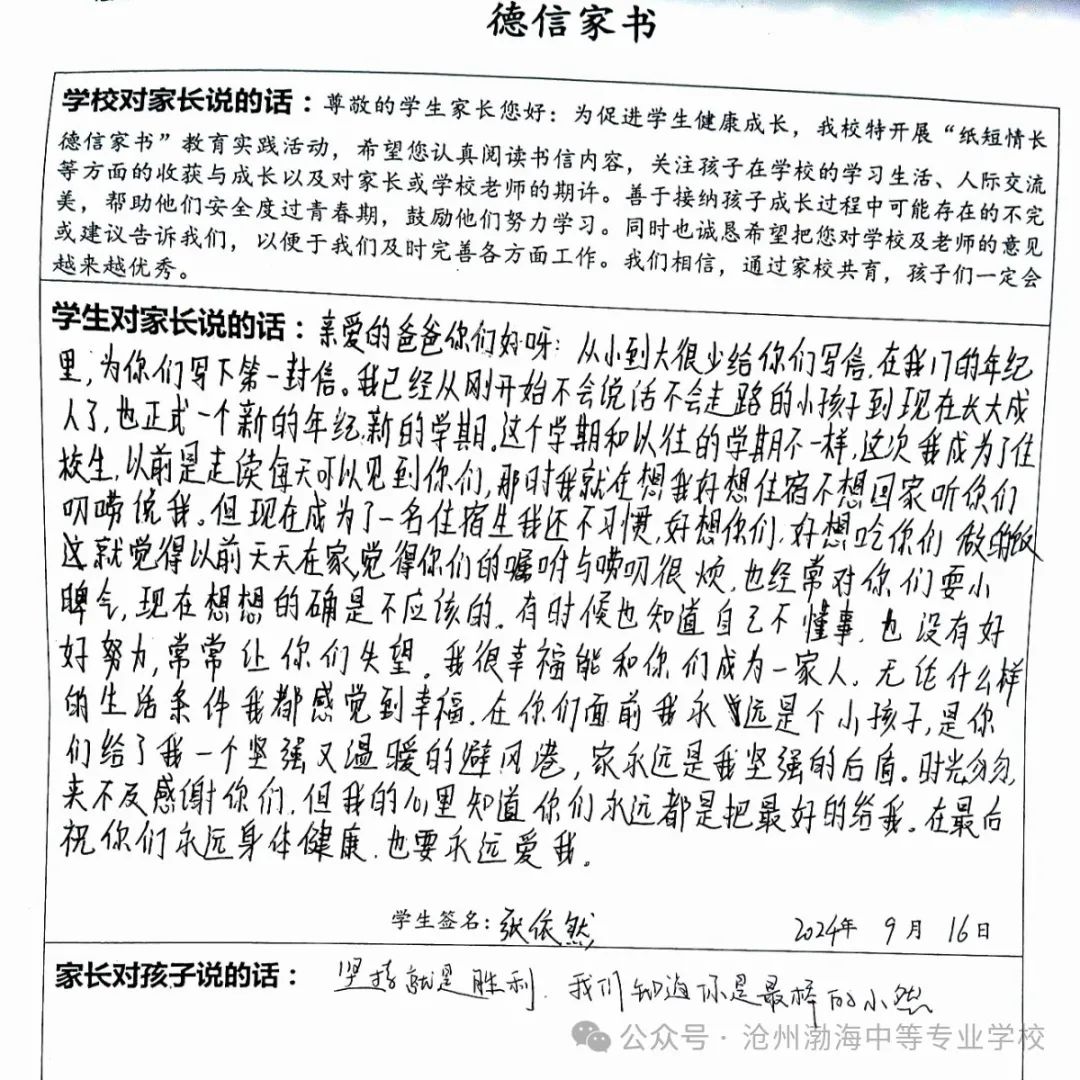 德信家书
学校对家长说的话：尊敬的学生家长您好：为促进学生健康成长，我校特开展“纸短情长
德信家书”教育实践活动，希望您认真阅读书信内容，关注孩子在学校的学习生活、人际交流
等方面的收获与成长以及对家长或学校老师的期许。善于接纳孩子成长过程中可能存在的不完
美，帮助他们安全度过青春期，鼓励他们努力学习。同时也诚恳希望把您对学校及老师的意见
或建议告诉我们，以便于我们及时完善各方面工作。我们相信，通过家校共育，孩子们一定会
越来越优秀。
学生对家长说的话：亲爱的爸爸你们好呀：从小到大很少给你们写信，在我17的年纪
里，为你们写下第一封信。我已经从刚开始不会说话不会走路的小孩子到现在长大成
人了，也正式一个新的年纪，新的学期。这个学期和以往的学期不一样，这次我成为了住
校生，以前是走读每天可以见到你们，那时我就在想我好想住宿不想回家听你们
叨唠说我。但现在成为了一名住宿生我还不习惯，好想你们，好想吃你们做的饭
这就觉得以前天天在家，觉得你们的嘱咐与唠叨很烦，也经常对你们耍小
脾气，现在想想的确是不应该的。有时候也知道自己不懂事，也没有好
好努力，常常让你们失望。我很幸福能和你们成为一家人。无论什么样
的生活条件我都感觉到幸福，在你们面前我永远是个小孩子，是你
们给了我一个坚强又温暖的避风港，家永远是我坚强的后盾。时光匆匆
来不及感谢你们，但我的心里知道你们永远都是把最好的给我。在最后
祝你们永远身体健康，也要永远爱我。
学生签名：张依然 2024年 9月 16日
家长对孩子说的话：坚持就是胜利，我们知道你是最棒的小然
公众号·沧州渤海中等专业学校